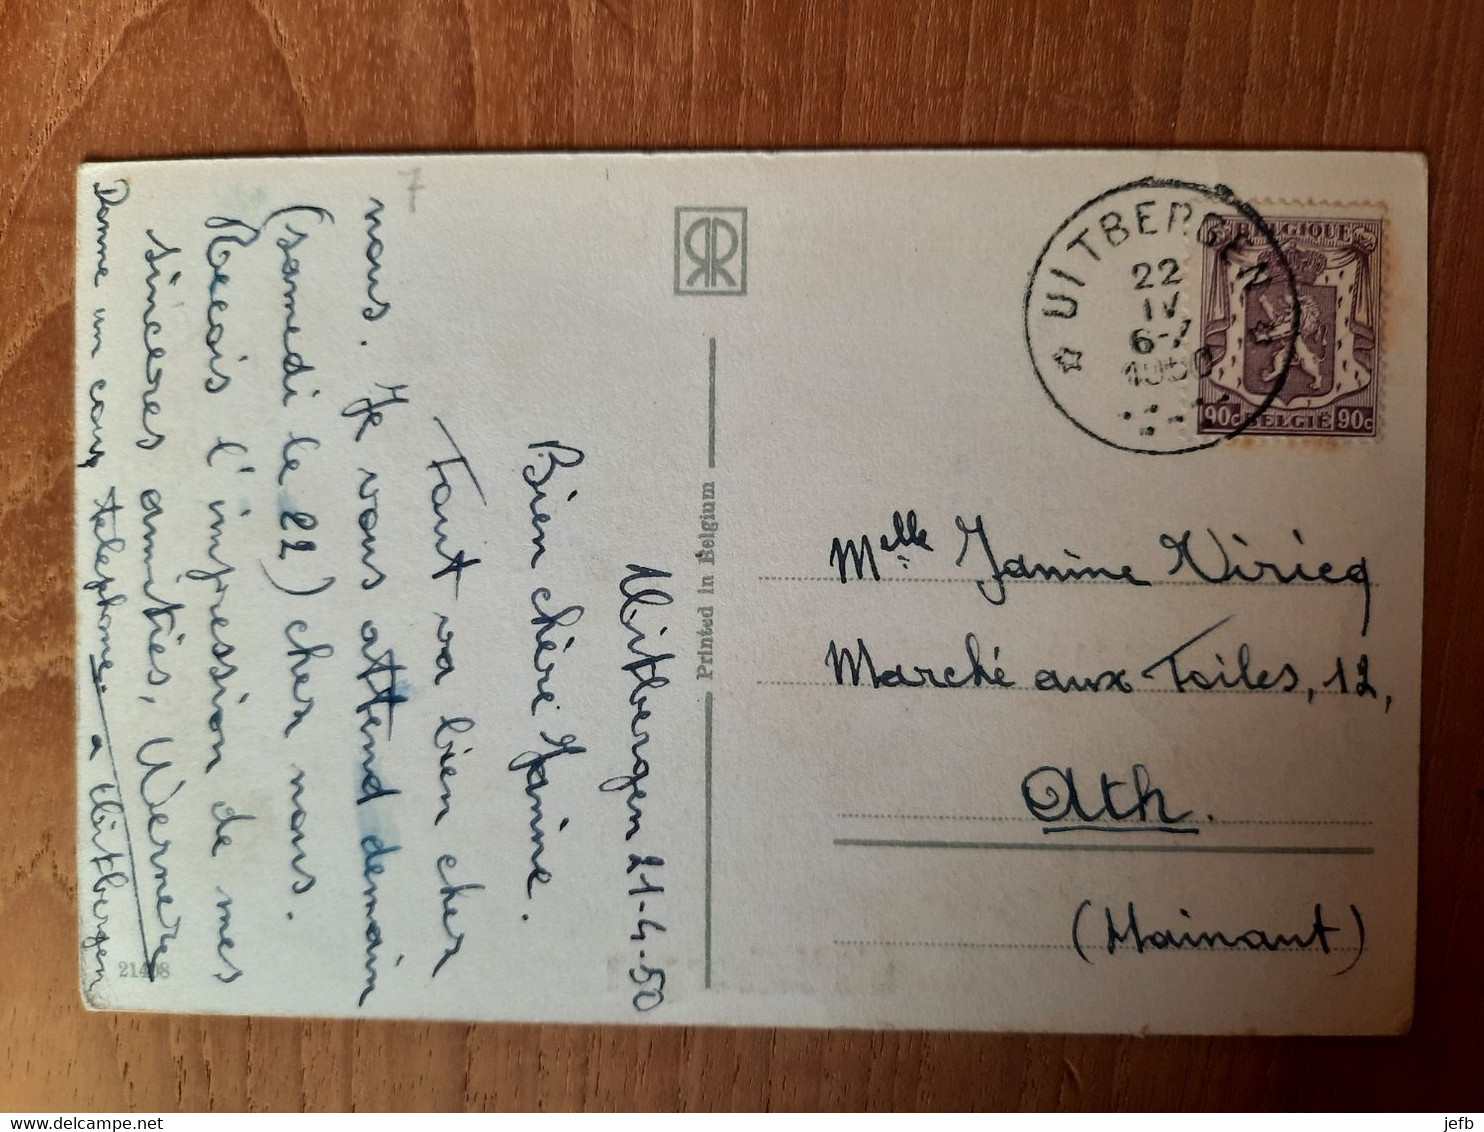 Uitbergen 21-4-50
Bien chère Janine.
Tout va bien chez
nous. Je vous attend demain
(samedi le 22) chez nous.
Recois l'impression de mes
sincères amitiés, Werner
Donne un coup telephone a Uitbergen
21408
7
RR
Printed in Belgium
UITBERGEN
22
IV
6-7
1950
BELGIQUE
90c BELGIË 90c
Melle Janine Viricq
Marché aux Toiles, 12,
Ath.
(Hainaut)
jefb